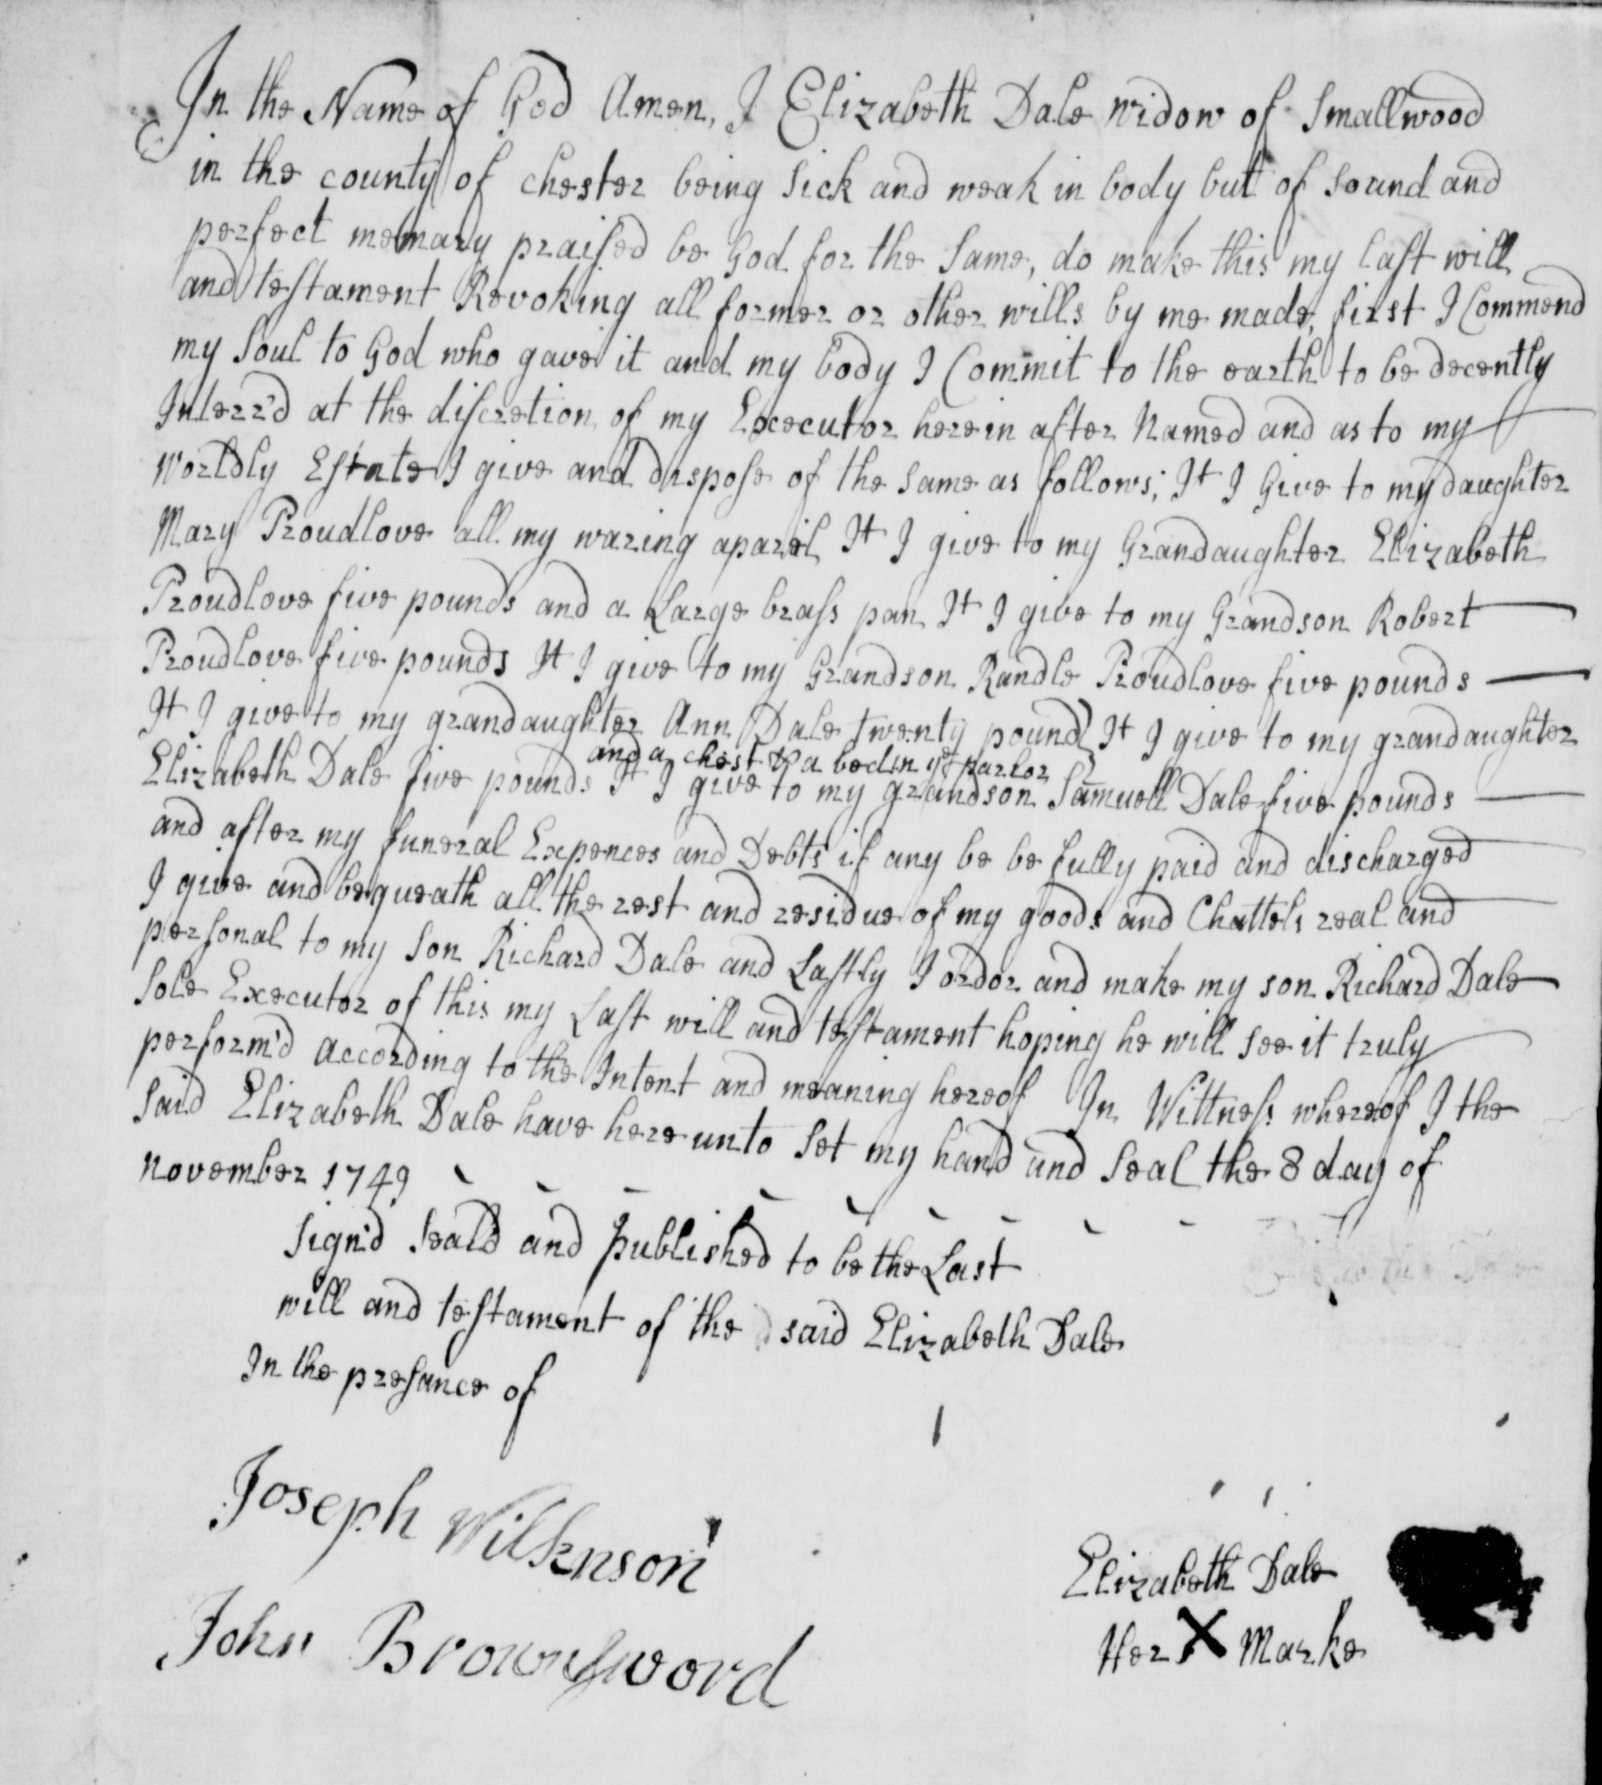 In the Name of God Amen, I Elizabeth Dale Widow of Smallwood
in the county of Chester being Sick and weak in body but of Sound and
perfect memary praised be God for the Same, do make this my last will
and testament Revoking all former or other wills by me made, first I Commend
my Soul to God who gave it and my body I Commit to the earth to be decently
Interr'd at the discretion of my Executor herein after Named and as to my
Worldly Estate I give and dispose of the Same as follows; It I Give to my daughter
Mary Proudlove all my waring aparel It I give to my Grandaughter Elizabeth
Proudlove five pounds and a Large brass pan It I give to my Grandson Robert
Proudlove five pounds It I give to my Grandson Randle Proudlove five pounds
It I give to my grandaughter Ann Dale twenty pound It I give to my grandaughter
and a chest & a bed in ye parlor
Elizabeth Dale five pounds It I give to my grandson Samuell Dale five pounds
and after my funeral Expences and Debts if any be be fully paid and discharged
I give and bequeath all the rest and residue of my goods and Chattels real and
personal to my Son Richard Dale and Lastly I ordor and make my son Richard Dale
Sole Executor of this my Last will and testament hoping he will see it truly
perform'd according to the Intent and meaning hereof In Wittness whereof I the
Said Elizabeth Dale have here unto Set my hand and Seal the 8 day of
November 1749
Sign'd Seal'd and published to be the Last
will and testament of the said Elizabeth Dale
In the presance of
Joseph Wilknson
John Brownsword
Elizabeth Dale
Her X Marke